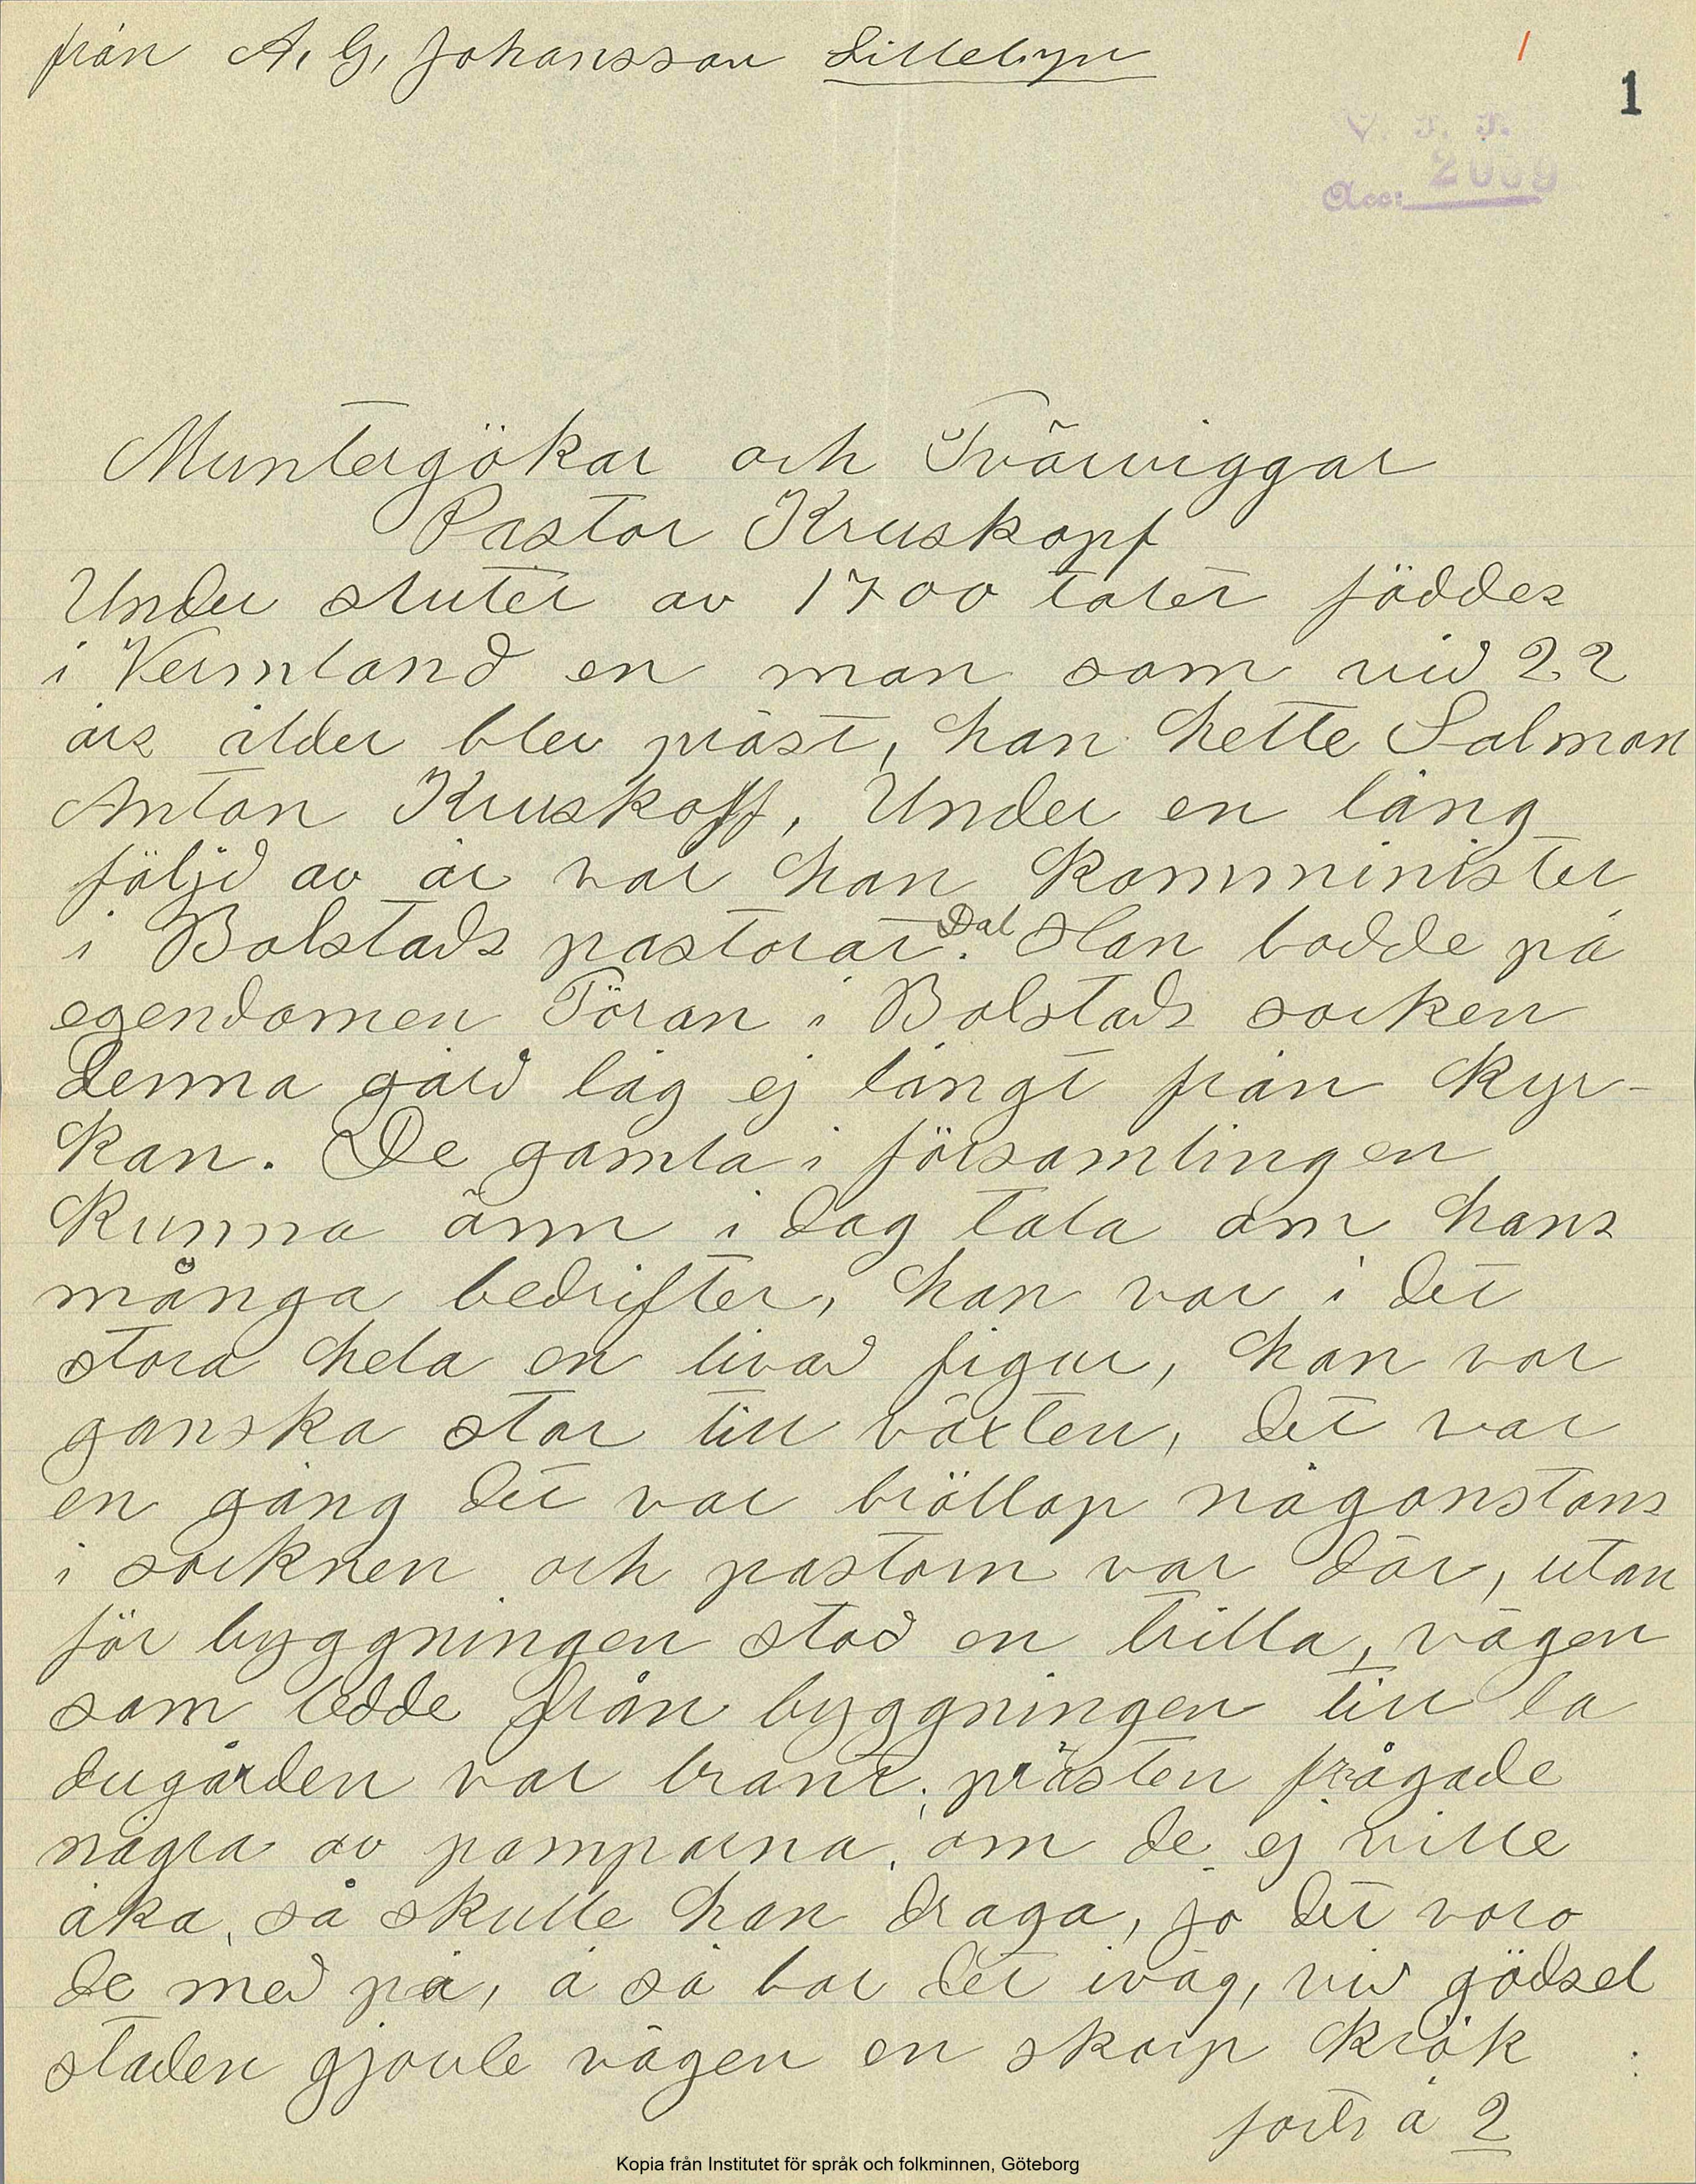 från A. G. Johansson Lillebyn
1
1
V. F. F.
Acc: 2069
Muntergökar och Tvärviggar
Pastor Kruskopf
Under slutet av 1700 talet föddes
i Vermland en man som vid 22
års ålder blev präst, han hette Salmon
Anton Kruskoff, Under en lång
följd av år var han komminister
i Bolstads pastorat. Dal Han bodde på
egendomen Töran i Bolstads socken
denna gård låg ej långt från kyr-
kan. De gamla i församlingen
kunna änn i dag tala om hans
många bedrifter, han var i det
stora hela en livad figur, han var
ganska stor till växten, det var
en gång det var bröllop någonstans
i socknen och pastorn var där, utan
för byggningen stod en trilla, vägen
som ledde från byggningen till la
dugården var brant, prästen frågade
några av pamparna, om de ej ville
åka, så skulle han draga, jo det voro
de med på, å så bar det iväg, vid gödsel
staden gjorde vägen en skarp krök
forts å 2
Kopia från Institutet för språk och folkminnen, Göteborg